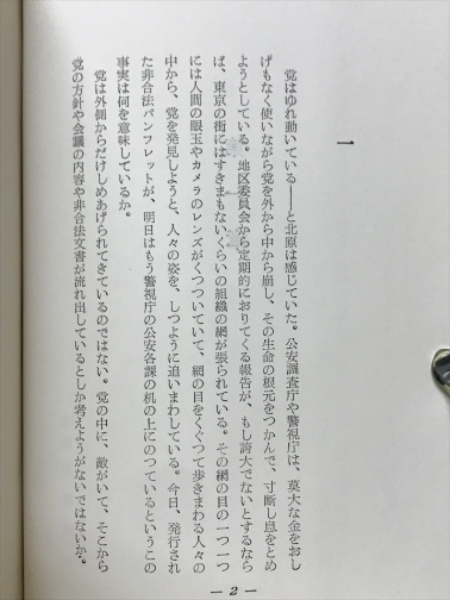 一
党はゆれ動いている――と北原は感じていた。公安調査庁や警視庁は、莫大な金をおし
げもなく使いながら党を外から中から崩し、その生命の根元をつかんで、寸断し息をとめ
ようとしている。地区委員会から定期的におりてくる報告が、もし誇大でないとするなら
ば、東京の街にはすきまもないくらいの組織の網が張られている。その網の目の一つ一つ
には人間の眼玉やカメラのレンズがくつついていて、網の目をくぐつて歩きまわる人々の
中から、党を発見しようと、人々の姿を、しつように追いまわしている。今日、発行され
た非合法パンフレットが、明日はもう警視庁の公安各課の机の上にのつているというこの
事実は何を意味しているか。
党は外側からだけしめあげられてきているのではない。党の中に、敵がいて、そこから
党の方針や会議の内容や非合法文書が流れ出しているとしか考えようがないではないか。
— 2 —